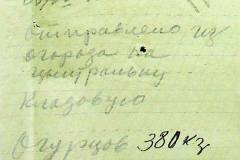 отправлено из
огорода на
центральну
кладовую
Огурцов 380 кг